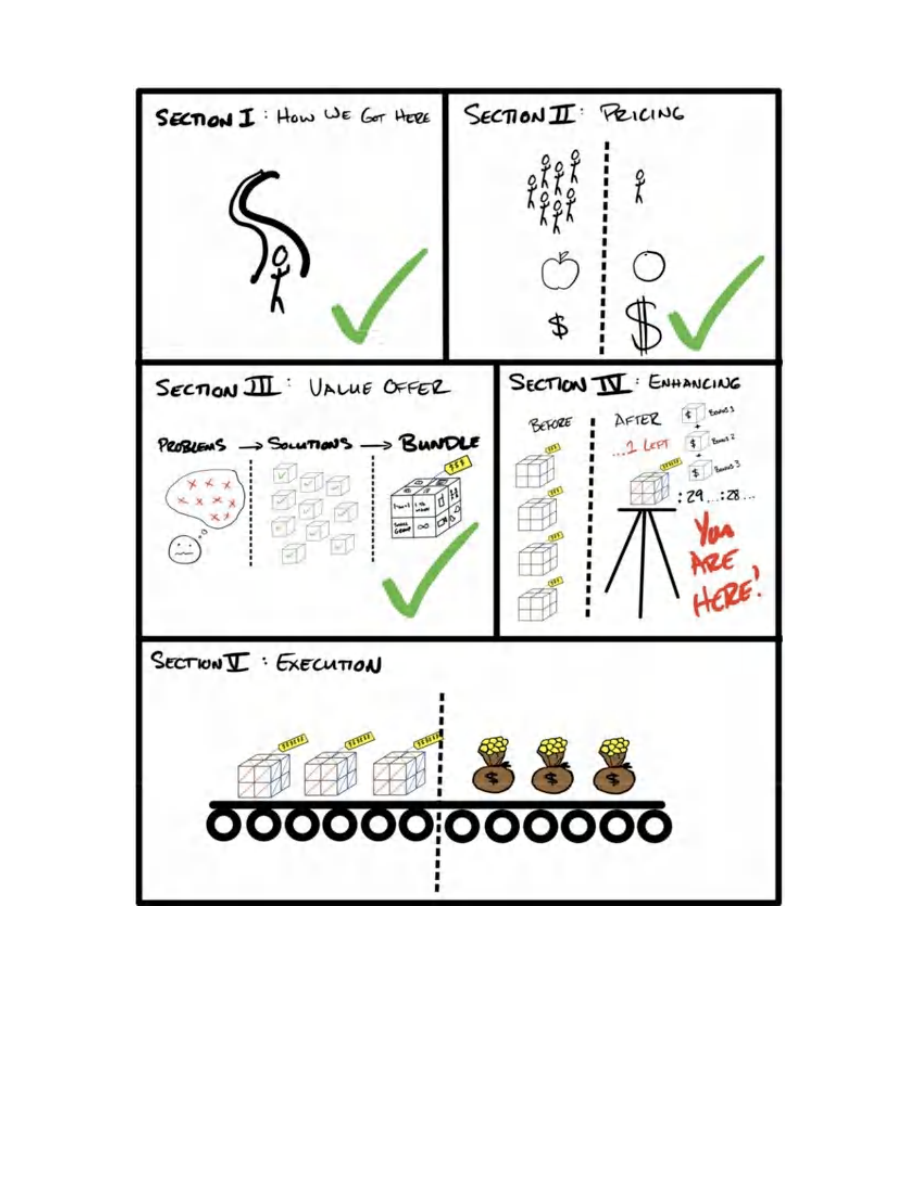 SECTION I : HOW WE GOT HERE
SECTION II : PRICING
$ $
SECTION III : VALUE OFFER
PROBLEMS → SOLUTIONS → BUNDLE
$$$
SMALL GROUP
SECTION IV : ENHANCING
BEFORE
$$$
$$$
$$$
$$$
AFTER
...1 LEFT
$ BONUS 1
+
$ BONUS 2
+
$ BONUS 3
:29...:28...
YOU
ARE
HERE!
SECTION V : EXECUTION
$ $ $